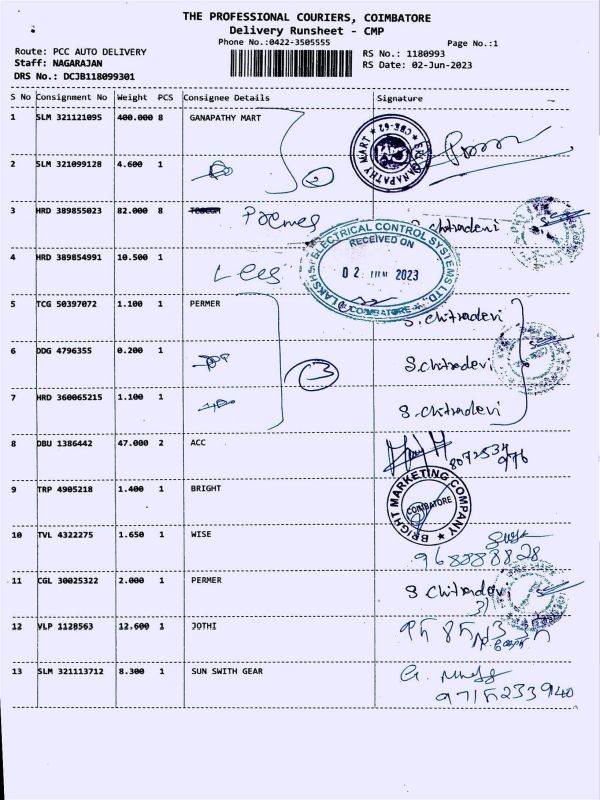 THE PROFESSIONAL COURIERS, COIMBATORE
Delivery Runsheet - CMP
Phone No.:0422-3505555
Page No.:1
Route: PCC AUTO DELIVERY
RS No.: 1180993
Staff: NAGARAJAN
RS Date: 02-Jun-2023
DRS No.: DCJB118099301
S No Consignment No Weight PCS Consignee Details Signature
1 SLM 321121095 400.000 8 GANAPATHY MART
GANAPATHY MART
2 SLM 321099128 4.600 1
2
3 HRD 389855023 82.000 8 Premes S. Chitradevi
ELECTRICAL CONTROL SYSTEMS LTD.
RECEIVED ON
02 JUN 2023
COIMBATORE
4 HRD 389854991 10.500 1 Lees
5 TCG 50397072 1.100 1 PERMER S. Chitradevi
6 DDG 4796355 0.200 1 S. Chitradevi
3
7 HRD 360065215 1.100 1 S. Chitradevi
8 DBU 1386442 47.000 2 ACC
9 TRP 4905218 1.400 1 BRIGHT
BRIGHT MARKETING COMPANY
COIMBATORE
10 TVL 4322275 1.650 1 WISE
11 CGL 30025322 2.000 1 PERMER S Chitradevi
12 VLP 1128563 12.600 1 JOTHI
13 SLM 321113712 8.300 1 SUN SWITH GEAR
9715233940